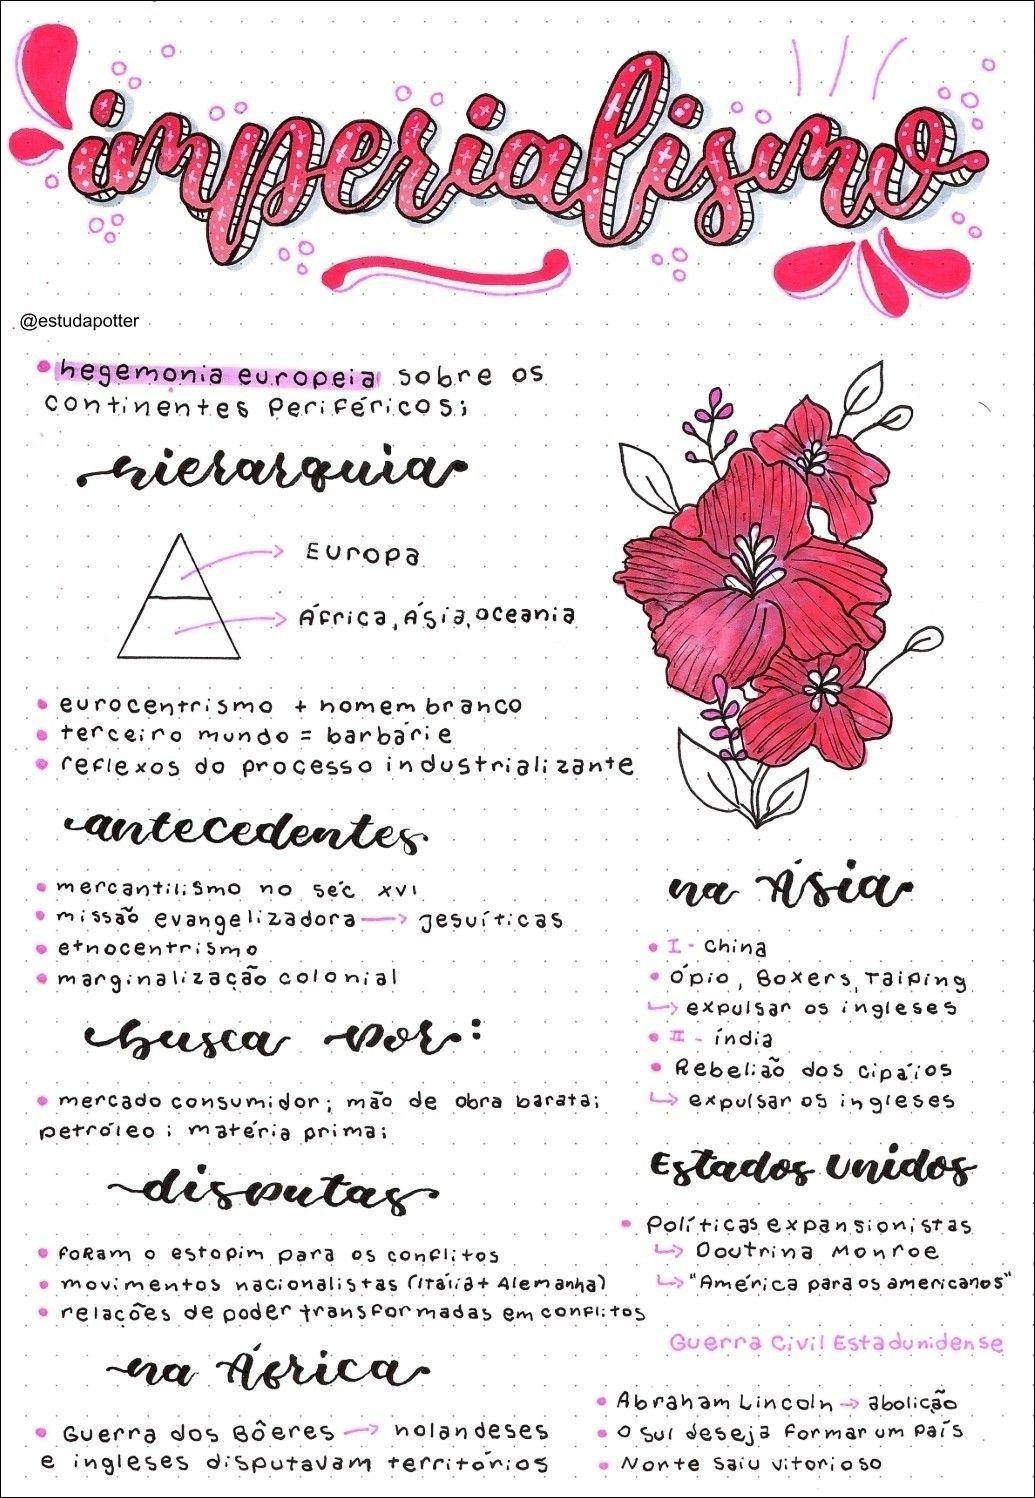 imperialismo
@estudapotter
• hegemonia europeia sobre os
continentes periféricos;
hierarquia
Europa
África, Ásia, oceania
• eurocentrismo + homem branco
• terceiro mundo = barbárie
• reflexos do processo industrializante
antecedentes
• mercantilismo no séc XVI
• missão evangelizadora → jesuíticas
• etnocentrismo
• marginalização colonial
busca por:
• mercado consumidor; mão de obra barata;
petróleo; matéria prima;
disputas
• foram o estopim para os conflitos
• movimentos nacionalistas (Itália + Alemanha)
• relações de poder transformadas em conflitos
na África
• Guerra dos Bôeres → holandeses
e ingleses disputavam territórios
na Ásia
• I - China
• Ópio, Boxers, Taiping
↳ expulsar os ingleses
• II - índia
• Rebelião dos cipaios
↳ expulsar os ingleses
Estados Unidos
• Políticas expansionistas
↳ Doutrina Monroe
↳ "América para os americanos"
Guerra Civil Estadunidense
• Abraham Lincoln → abolição
• O Sul deseja formar um país
• Norte saiu vitorioso